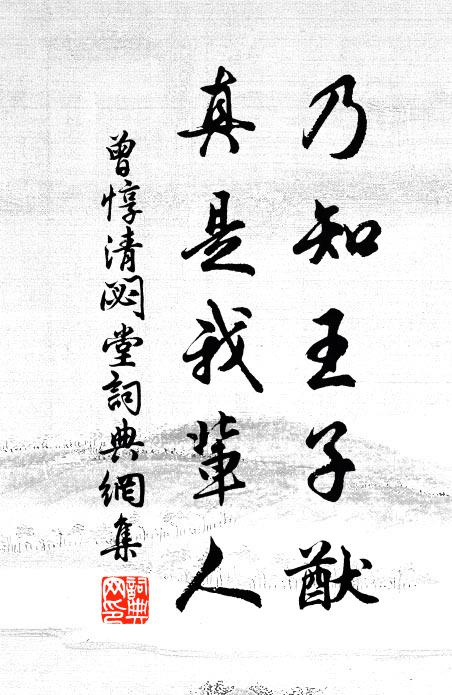 乃知王子猷
真是我輩人
曾惇清閟堂詞典網集
詞典網印